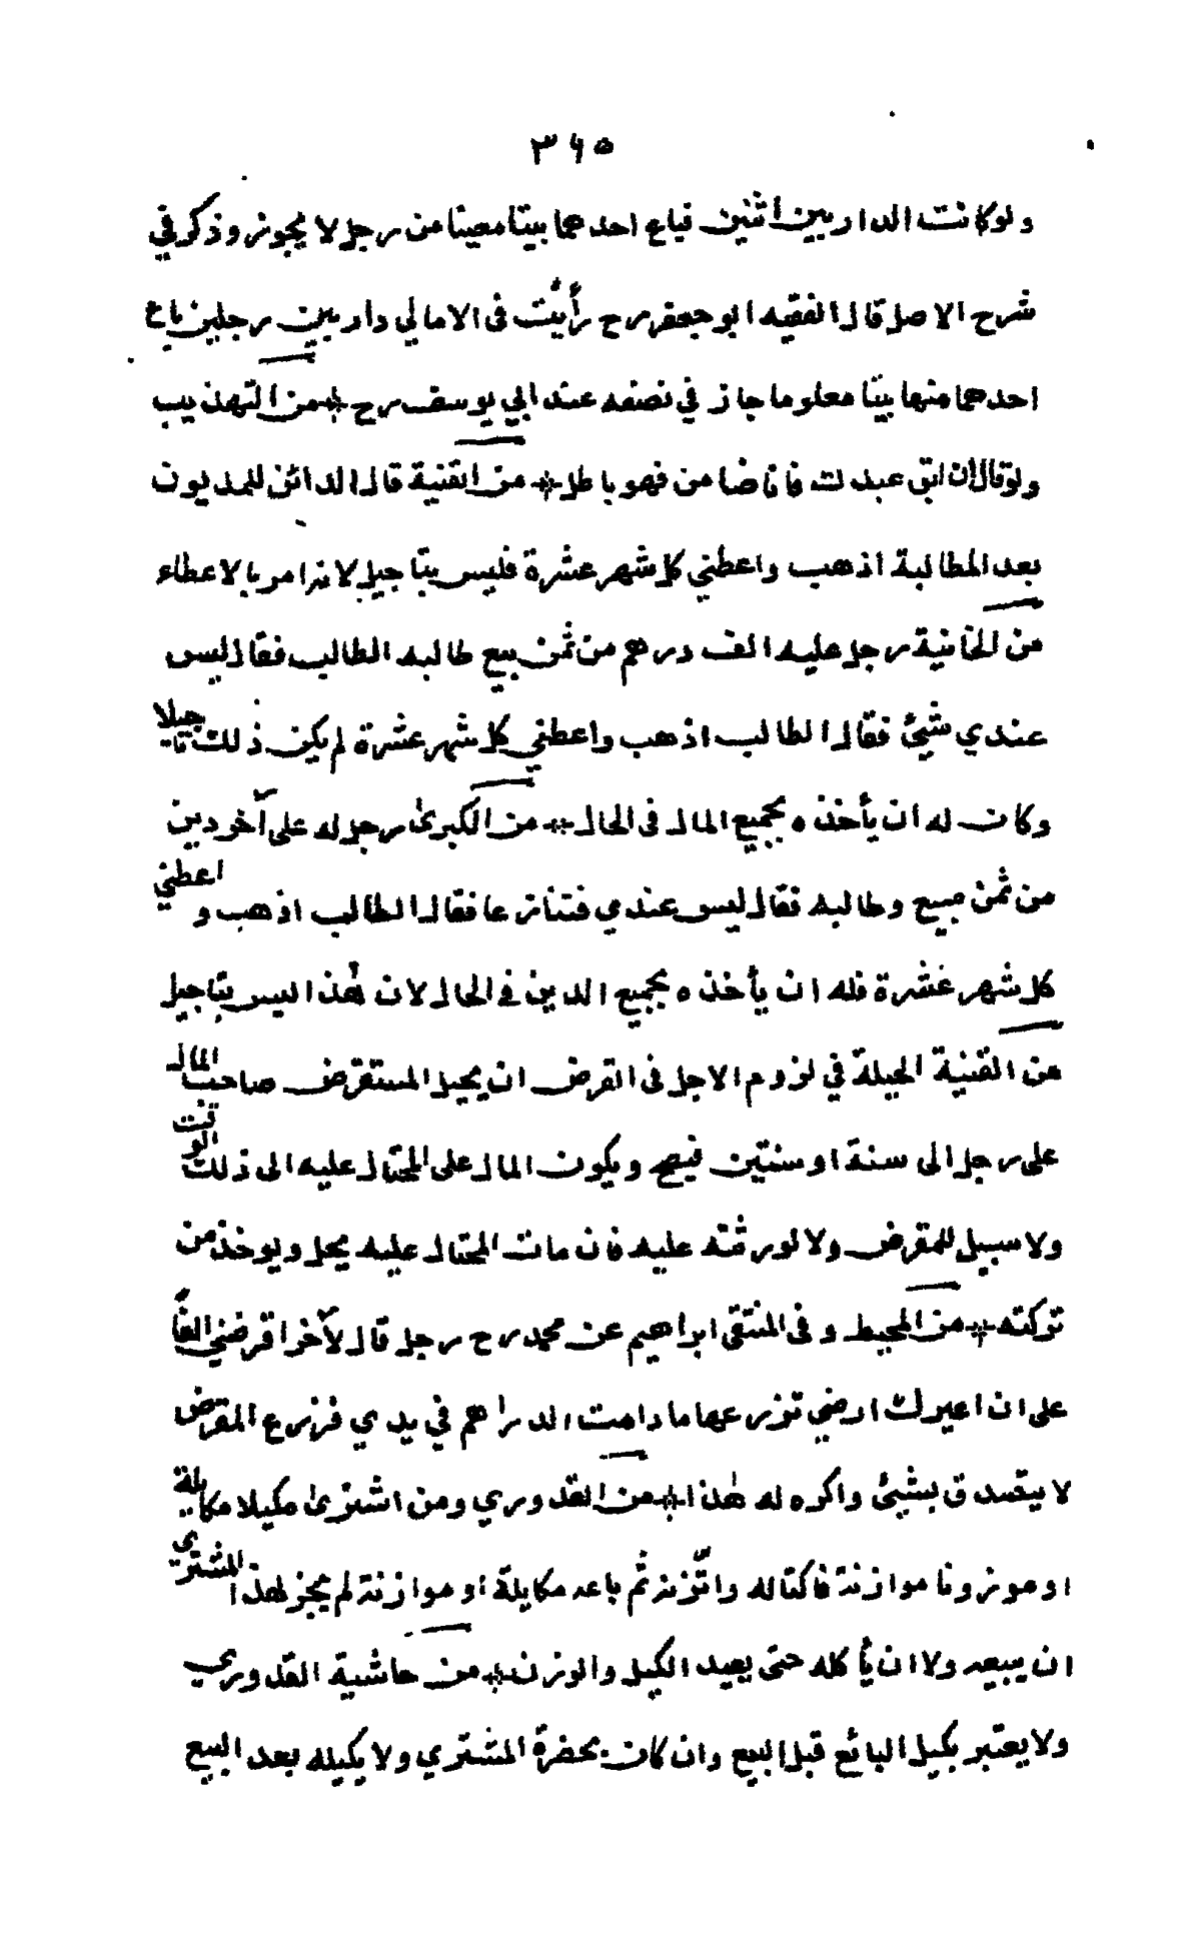 ٣٦٥
ولوكانت الدار بين اثنين فباع احدهما بيتا معينا من رجل لا يجوز وذكر في
شرح الاصل قال الفقيه ابو جعفر رح رأيت فى الامالي دار بين رجلين باع
احدهما منها بيتا معلوما جاز في نصفه عند ابي يوسف رح * من التهذيب
ولو قال ان ابق عبدك فانا ضامن فهو باطل * من القنية قال الدائن للمديون
بعد المطالبة اذهب واعطني كل شهر عشرة فليس بتاجيل لانه امر بالاعطاء
من الخانية رجل عليه الف درهم من ثمن بيع طالبه الطالب فقال ليس
عندي شيئ فقال الطالب اذهب واعطني كل شهر عشرة لم يكن ذلك تاجيلا
وكان له ان يأخذه بجميع المال فى الحال * من الكبرىٰ رجل له على آخر دين
من ثمن مبيع وطالبه فقال ليس عندي فتنازعا فقال الطالب اذهب واعطني
كل شهر عشرة فله ان يأخذه بجميع الدين في الحال لان هٰذا ليس بتاجيل
من القنية الحيلة في لزوم الاجل فى القرض ان يحيل المستقرض صاحب المال
على رجل الى سنة او سنتين فيصح ويكون المال على المحتال عليه الى ذلك الوقت
ولا سبيل للمقرض ولا لورثته عليه فان مات المحتال عليه يحل ويوخذ من
تركته * من المحيط وفى المنتقى ابراهيم عن محمد رح رجل قال لآخر اقرضني الفًا
على ان اعيرك ارضي تزرعها ما دامت الدراهم في يدي فزرع المقرض
لا يتصدق بشيئ واكره له هٰذا * من القدوري ومن اشترىٰ مكيلا مكايلة
او موزونا موازنة فاكتاله واتّزنه ثم باعه مكايلة او موازنة لم يجز لهٰذا المشتري
ان يبيعه ولا ان يأكله حتى يعيد الكيل والوزن * من حاشية القدوري
ولا يعتبر بكيل البائع قبل البيع وان كان بحضرة المشتري ولا بكيله بعد البيع